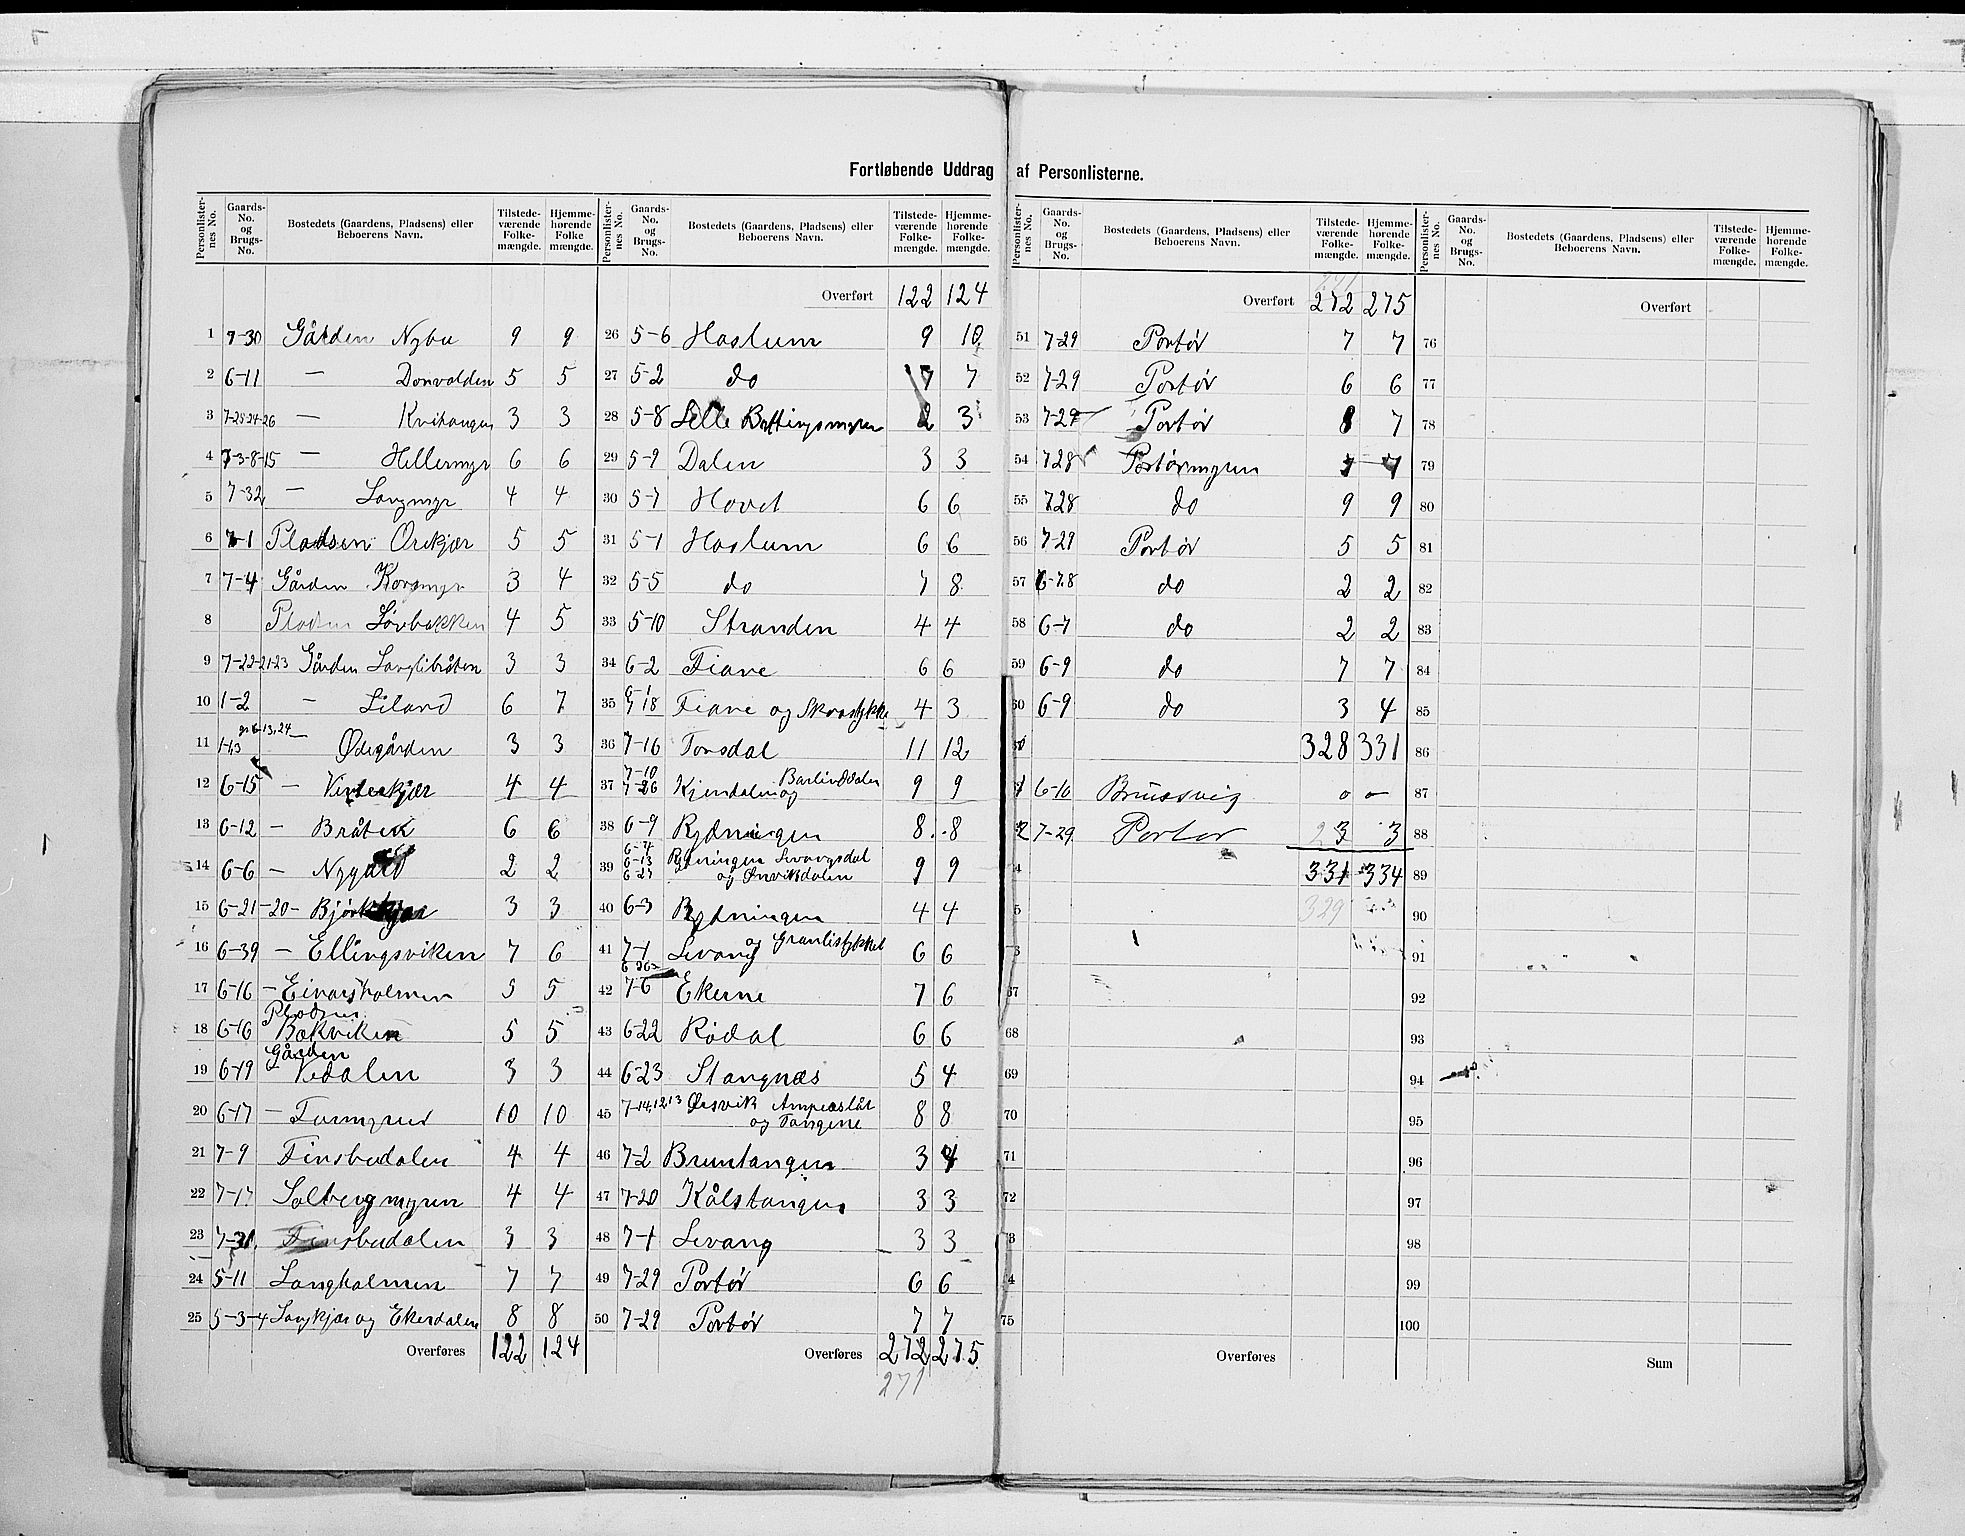 Fortløbende Uddrag af Personlisterne.
Personlister-nes No. Gaards-No. og Brugs-No. Bostedets (Gaardens, Pladsens) eller Beboerens Navn. Tilstede-værende Folke-mængde. Hjemme-hørende Folke mængde.
1 7-30 Gården Nybu 9 9
2 6-11 — Donvalden 5 5
3 7-25-24-26 — Kvihaugen 3 3
4 7-3-8-15 — Hellermyr 6 6
5 7-32 — Langmyr 4 4
6 7-1 Pladsen Orekjær 5 5
7 7-4 Gården Korsmyr 3 4
8 Pladsen Løvbakken 4 5
9 7-22-21-23 Gården Langlibråten 3 3
10 1-2 — Liland 6 7
11 1-1,3 — Ødegården 3 3
12 6-15 — Vinterkjær 4 4
13 6-12 — Bråten 6 6
14 6-6 — Nygård 2 2
15 6-21-20- Bjørkkjær 3 3
16 6-39 — Ellingsviken 7 6
17 6-16 — Einarsholmen 5 5
18 6-16 Pladsen Bækviken 5 5
19 6-19 Gården Vedalen 3 3
20 6-17 — Furmyren 10 10
21 7-9 Finsbudalen 4 4
22 7-17 Solbergmyren 4 4
23 7-31 Finsbudalen 3 3
24 5-11 Langholmen 7 7
25 5-3-4 Langkjær og Ekerdalen 8 8
Overføres 122 124
Personlister-nes No. Gaards-No. og Brugs-No. Bostedets (Gaardens, Pladsens) eller Beboerens Navn. Tilstede-værende Folke-mængde. Hjemme-hørende Folke-mængde.
Overført 122 124
26 5-6 Haslum 9 10
27 5-2 do 7 7
28 5-8 Lille Battingsmyren 2 3
29 5-9 Dalen 3 3
30 5-7 Hovet 6 6
31 5-1 Haslum 6 6
32 5-5 do 7 8
33 5-10 Stranden 4 4
34 6-2 Fiane 6 6
35 6-1 7-18 Fiane og Skrastykke 4 3
36 7-16 Torsdal 11 12
37 7-10 7-26 Kjendalen og Barlinddalen 9 9
38 6-9 Rydningen 8 8
39 6-4 6-13 6-27 Rydningen Levangsdal og Ørvikdalen 9 9
40 6-3 Rydningen 4 4
41 7-1 6-26 Levang og Granlistykket 6 6
42 7-6 Ekerne 7 6
43 6-22 Rødal 6 6
44 6-23 Stangnæs 5 4
45 7-14,12,13 Øresvik Amperslåt og Tangene 8 8
46 7-2 Bruntangen 3 4
47 7-20 Kålstangen 3 3
48 7-1 Levang 3 3
49 7-29 Portør 6 6
50 7-29 Portør 7 7
Overføres 272 275
271
Personlister-nes No. Gaards-No. og Brugs-No. Bostedets (Gaardens, Pladsens) eller Beboerens Navn. Tilstede-værende Folke-mængde. Hjemme-hørende Folke-mængde.
Overført 272 275
51 7-29 Portør 7 7
52 7-29 Portør 6 6
53 7-29 Portør 8 7
54 7-28 Portørmyren 7 7
55 7-28 do 9 9
56 7-29 Portør 5 5
57 6-7.8 do 2 2
58 6-7 do 2 2
59 6-9 do 7 7
60 6-9 do 3 4
328 331
6-10 Brussvig 0 0
7-29 Portør 3 3
331 334
329
68
69
70
71
72
75
Overføres
Personlister-nes No. Gaards-No. og Brugs-No. Bostedets (Gaardens, Pladsens) eller Beboerens Navn. Tilstede-værende Folke-mængde. Hjemme-hørende Folke-mængde.
Overført
76
77
78
79
80
81
82
83
84
85
86
87
88
89
90
91
92
93
94
95
96
97
98
99
100
Sum